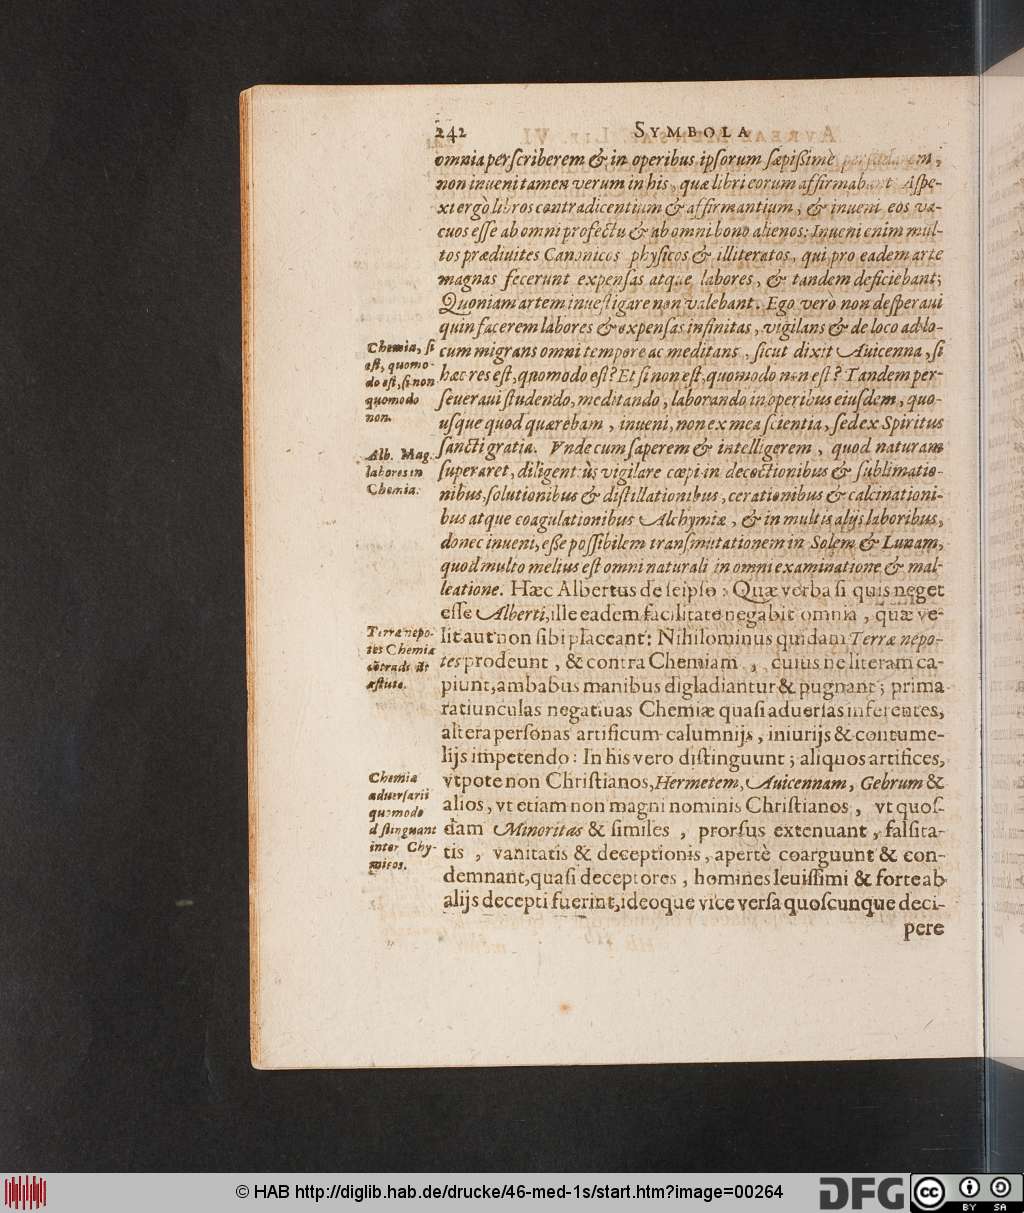 242 SYMBOLA
omnia perſcriberem & in operibus ipſorum ſæpiſſimè perſtudarem,
non inueni tamen verum in his, quæ libri eorum affirmabant Aſpe-
xi ergò libros contradicentium & affirmantium, & inueni eos va-
cuos eſſe ab omni profectu & ab omni bono alienos: Inueni enim mul-
tos prædiuites Canonicos phyſicos & illiteratos, qui pro eadem arte
magnas fecerunt expenſas atque labores, & tandem deficiebant;
Quoniam artem inueſtigare non valebant. Ego verò non deſperaui
quin facerem labores & expenſas infinitas, vigilans & de loco ad lo-
cum migrans omni tempore ac meditans, ſicut dixit Auicenna, ſi
hæc res eſt, quomodo eſt? Et ſi non eſt, quomodo non eſt? Tandem per-
ſeueraui ſtudendo, meditando, laborando in operibus eiuſdem, quo-
uſque quod quærebam, inueni, non ex mea ſcientia, ſed ex Spiritus
ſancti gratia. Vnde cum ſaperem & intelligerem, quod naturam
ſuperaret, diligentiùs vigilare cœpi in decoctionibus & ſublimatio-
nibus, ſolutionibus & diſtillationibus, cerationibus & calcinationi-
bus atque coagulationibus Alchymiæ, & in multis alijs laboribus,
donec inueni, eſſe poſſibilem tranſmutationem in Solem & Lunam,
quod multo melius eſt omni naturali in omni examinatione & mal-
leatione. Hæc Albertus de ſeipſo: Quæ verba ſi quis neget
eſſe Alberti, ille eadem facilitate negabit omnia, quæ ve-
lit aut non ſibi placeant: Nihilominus quidam Terræ nepo-
tes prodeunt, & contra Chemiam, cuius ne literam ca-
piunt, ambabus manibus digladiantur & pugnant; prima
ratiunculas negatiuas Chemiæ quaſi aduerſas inferentes,
altera perſonas artificum calumnijs, iniurijs & contume-
lijs impetendo: In his vero diſtinguunt; aliquos artifices,
vtpote non Chriſtianos, Hermetem, Auicennam, Gebrum &
alios, vt etiam non magni nominis Chriſtianos, vt quoſ-
dam Minoritas & ſimiles, prorſus extenuant, falſita-
tis, vanitatis & deceptionis, apertè coarguunt & con-
demnant, quaſi deceptores, homines leuiſſimi & forte ab
alijs decepti fuerint, ideoque vice verſa quoſcunque deci-
pere
Chemia, ſi
eſt, quomo-
do eſt, ſi non
quomodo
non.
Alb. Mag.
labores in
Chemia.
Terræ nepo-
tes Chemiæ
cõtradicũt
aſtutè.
Chemiæ
aduerſarii
quomodo
diſtinguant
inter Chy-
micos.
© HAB http://diglib.hab.de/drucke/46-med-1s/start.htm?image=00264
DFG
cc BY SA